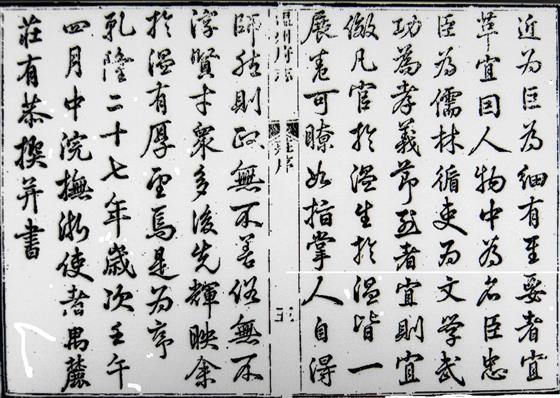 近为巨為細有至要者宜
革宜因人物中為名臣忠
臣為儒林循吏为文學武
功為孝義節烈者宜則宜
傚凡官於溫生於溫皆一
展卷可瞭如指掌人自得
溫州府志
序
三
師然則政無不善俗無不
淳賢才眾多後先輝映余
於溫有厚望焉是為序
乾隆二十七年歲次壬午
四月中浣撫浙使者禺麓
莊有恭撰并書